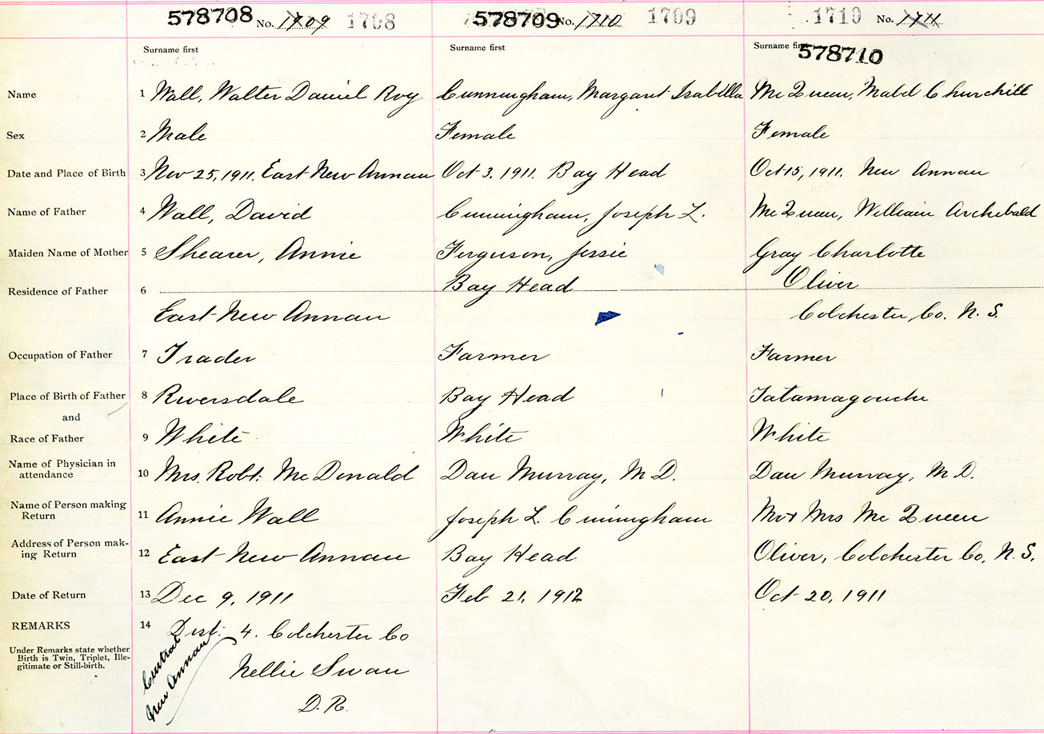 578708 No. 1709 1708 578709 No. 1710 1709 1710 No. 1711
Surname first Surname first Surname first 578710
Name 1 Wall, Walter Daniel Roy Cunningham, Margaret Isabella McQueen, Mabel Churchill
Sex 2 Male Female Female
Date and Place of Birth 3 Nov 25, 1911. East New Annan Oct 3. 1911. Bay Head Oct 15, 1911. New Annan
Name of Father 4 Wall, David Cunningham, Joseph L. McQueen, William Archebald
Maiden Name of Mother 5 Shearer, Annie Ferguson, Jessie Gray Charlotte
Residence of Father 6 Bay Head Oliver
East New Annan Colchester, Co. N.S.
Occupation of Father 7 Trader Farmer Farmer
Place of Birth of Father 8 Riversdale Bay Head Tatamagouche
and
Race of Father 9 White White White
Name of Physician in attendance 10 Mrs. Robt. McDonald Dan Murray, M.D. Dan Murray, M.D.
Name of Person making Return 11 Annie Wall Joseph L. Cunningham Mr & Mrs McQueen
Address of Person mak-ing Return 12 East New Annan Bay Head Oliver, Colchester Co, N.S.
Date of Return 13 Dec 9, 1911 Feb 21, 1912 Oct 20, 1911
REMARKS 14 Dist. 4. Colchester Co
Under Remarks state whether Birth is Twin, Triplet, Ille-gitimate or Still-birth.
Central New Annan
Nellie Swan
D.R.